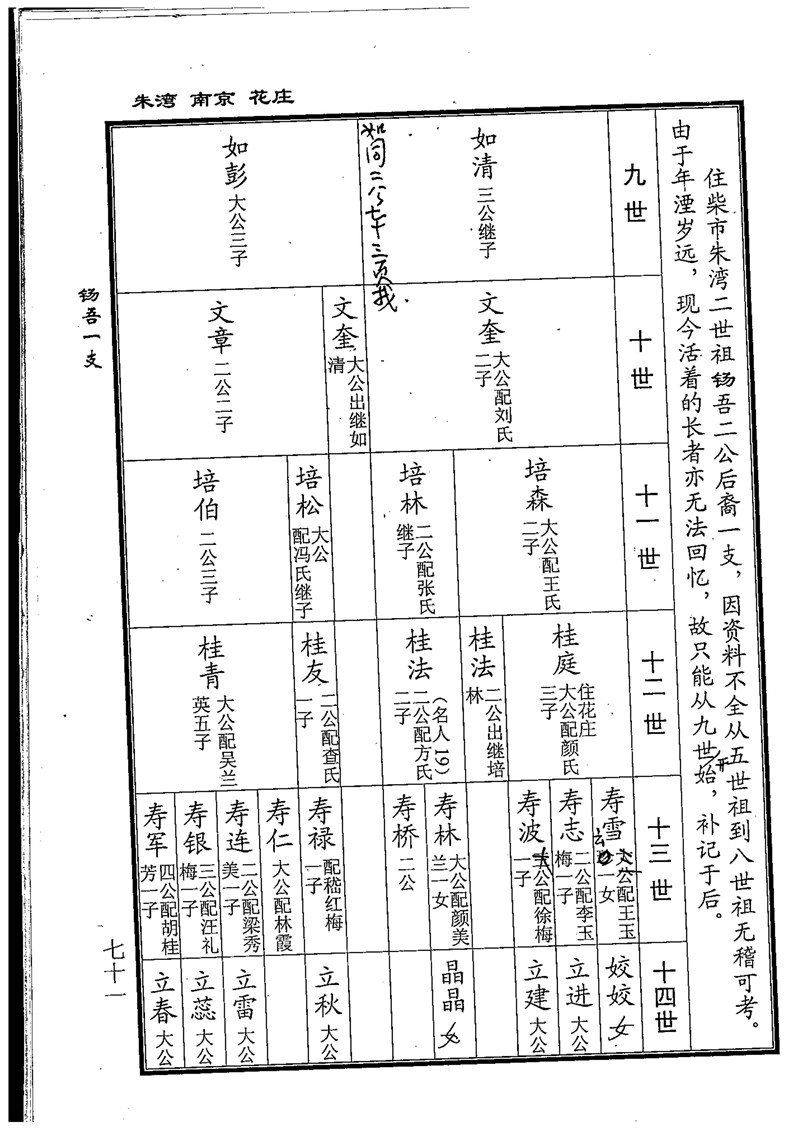 朱湾 南京 花庄
住柴市朱湾二世祖钖吾二公后裔一支，因资料不全从五世祖到八世祖无稽可考。
由于年湮岁远，现今活着的长者亦无法回忆，故只能从九世开始，补记于后。
九世
如清 三公继子
如彭 大公三子
十世
文奎 大公配刘氏
二子
文奎 大公出继如
清
文章 二公二子
十一世
培森 大公配王氏
二子
培林 二公配张氏
继子
培松 大公
配冯氏继子
培伯 二公三子
十二世
桂庭 住花庄
大公配颜氏
三子
桂法 二公出继培
林
桂法 （名人19）
二公配方氏
二子
桂友 二公配查氏
一子
桂青 大公配吴兰
英五子
十三世
寿雪 大公配王玉
一女
寿志 二公配李玉
梅一子
寿波 公配徐梅
一子
寿林 大公配颜美
兰一女
寿桥 二公
寿禄 配嵇红梅
一子
寿仁 大公配林霞
寿连 二公配梁秀
美一子
寿银 三公配汪礼
梅一子
寿军 四公配胡桂
芳一子
十四世
姣姣 女
立进 大公
立建 大公
晶晶 女
立秋 大公
立雷 大公
立蕊 大公
立春 大公
钖吾一支
七十一